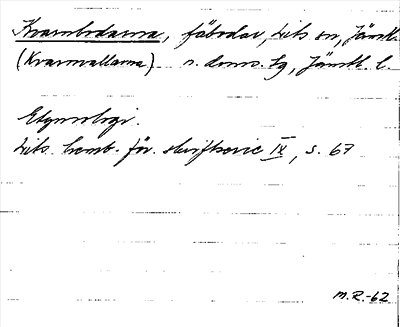 Krambodarna, fäbodar, Lits sn, Jämtl.
(Kvarnvallarna) n. doms. tg, Jämtl. l.
Etymologi.
Lits. hemb. för. skriftserie IV, s. 67
M.R.-62